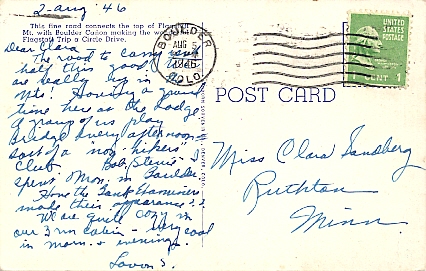 2-aug '46
This fine road connects the top of Flagstaff
Mt. with Boulder Canon making the
Flagstaff Trip a Circle Drive.
Dear Clara
The road to Camp isn't
half this good
are really big in
Mts! Having a grand
time here at the Lodge
A group of us play
Bridge every afternoon
sort of a "non-hikers"
Club
spent Mon. in Boulder
Have the Tank Examiners
made their appearance??
We are quite cozy in
our 3 rm cabin - very cool
in morn. & evenings.
BOULDER
AUG 5
1946
COLO.
UNITED STATES
POSTAGE
1 CENT 1
POST CARD
Miss Clara Sandberg
Ruthton
Minn.